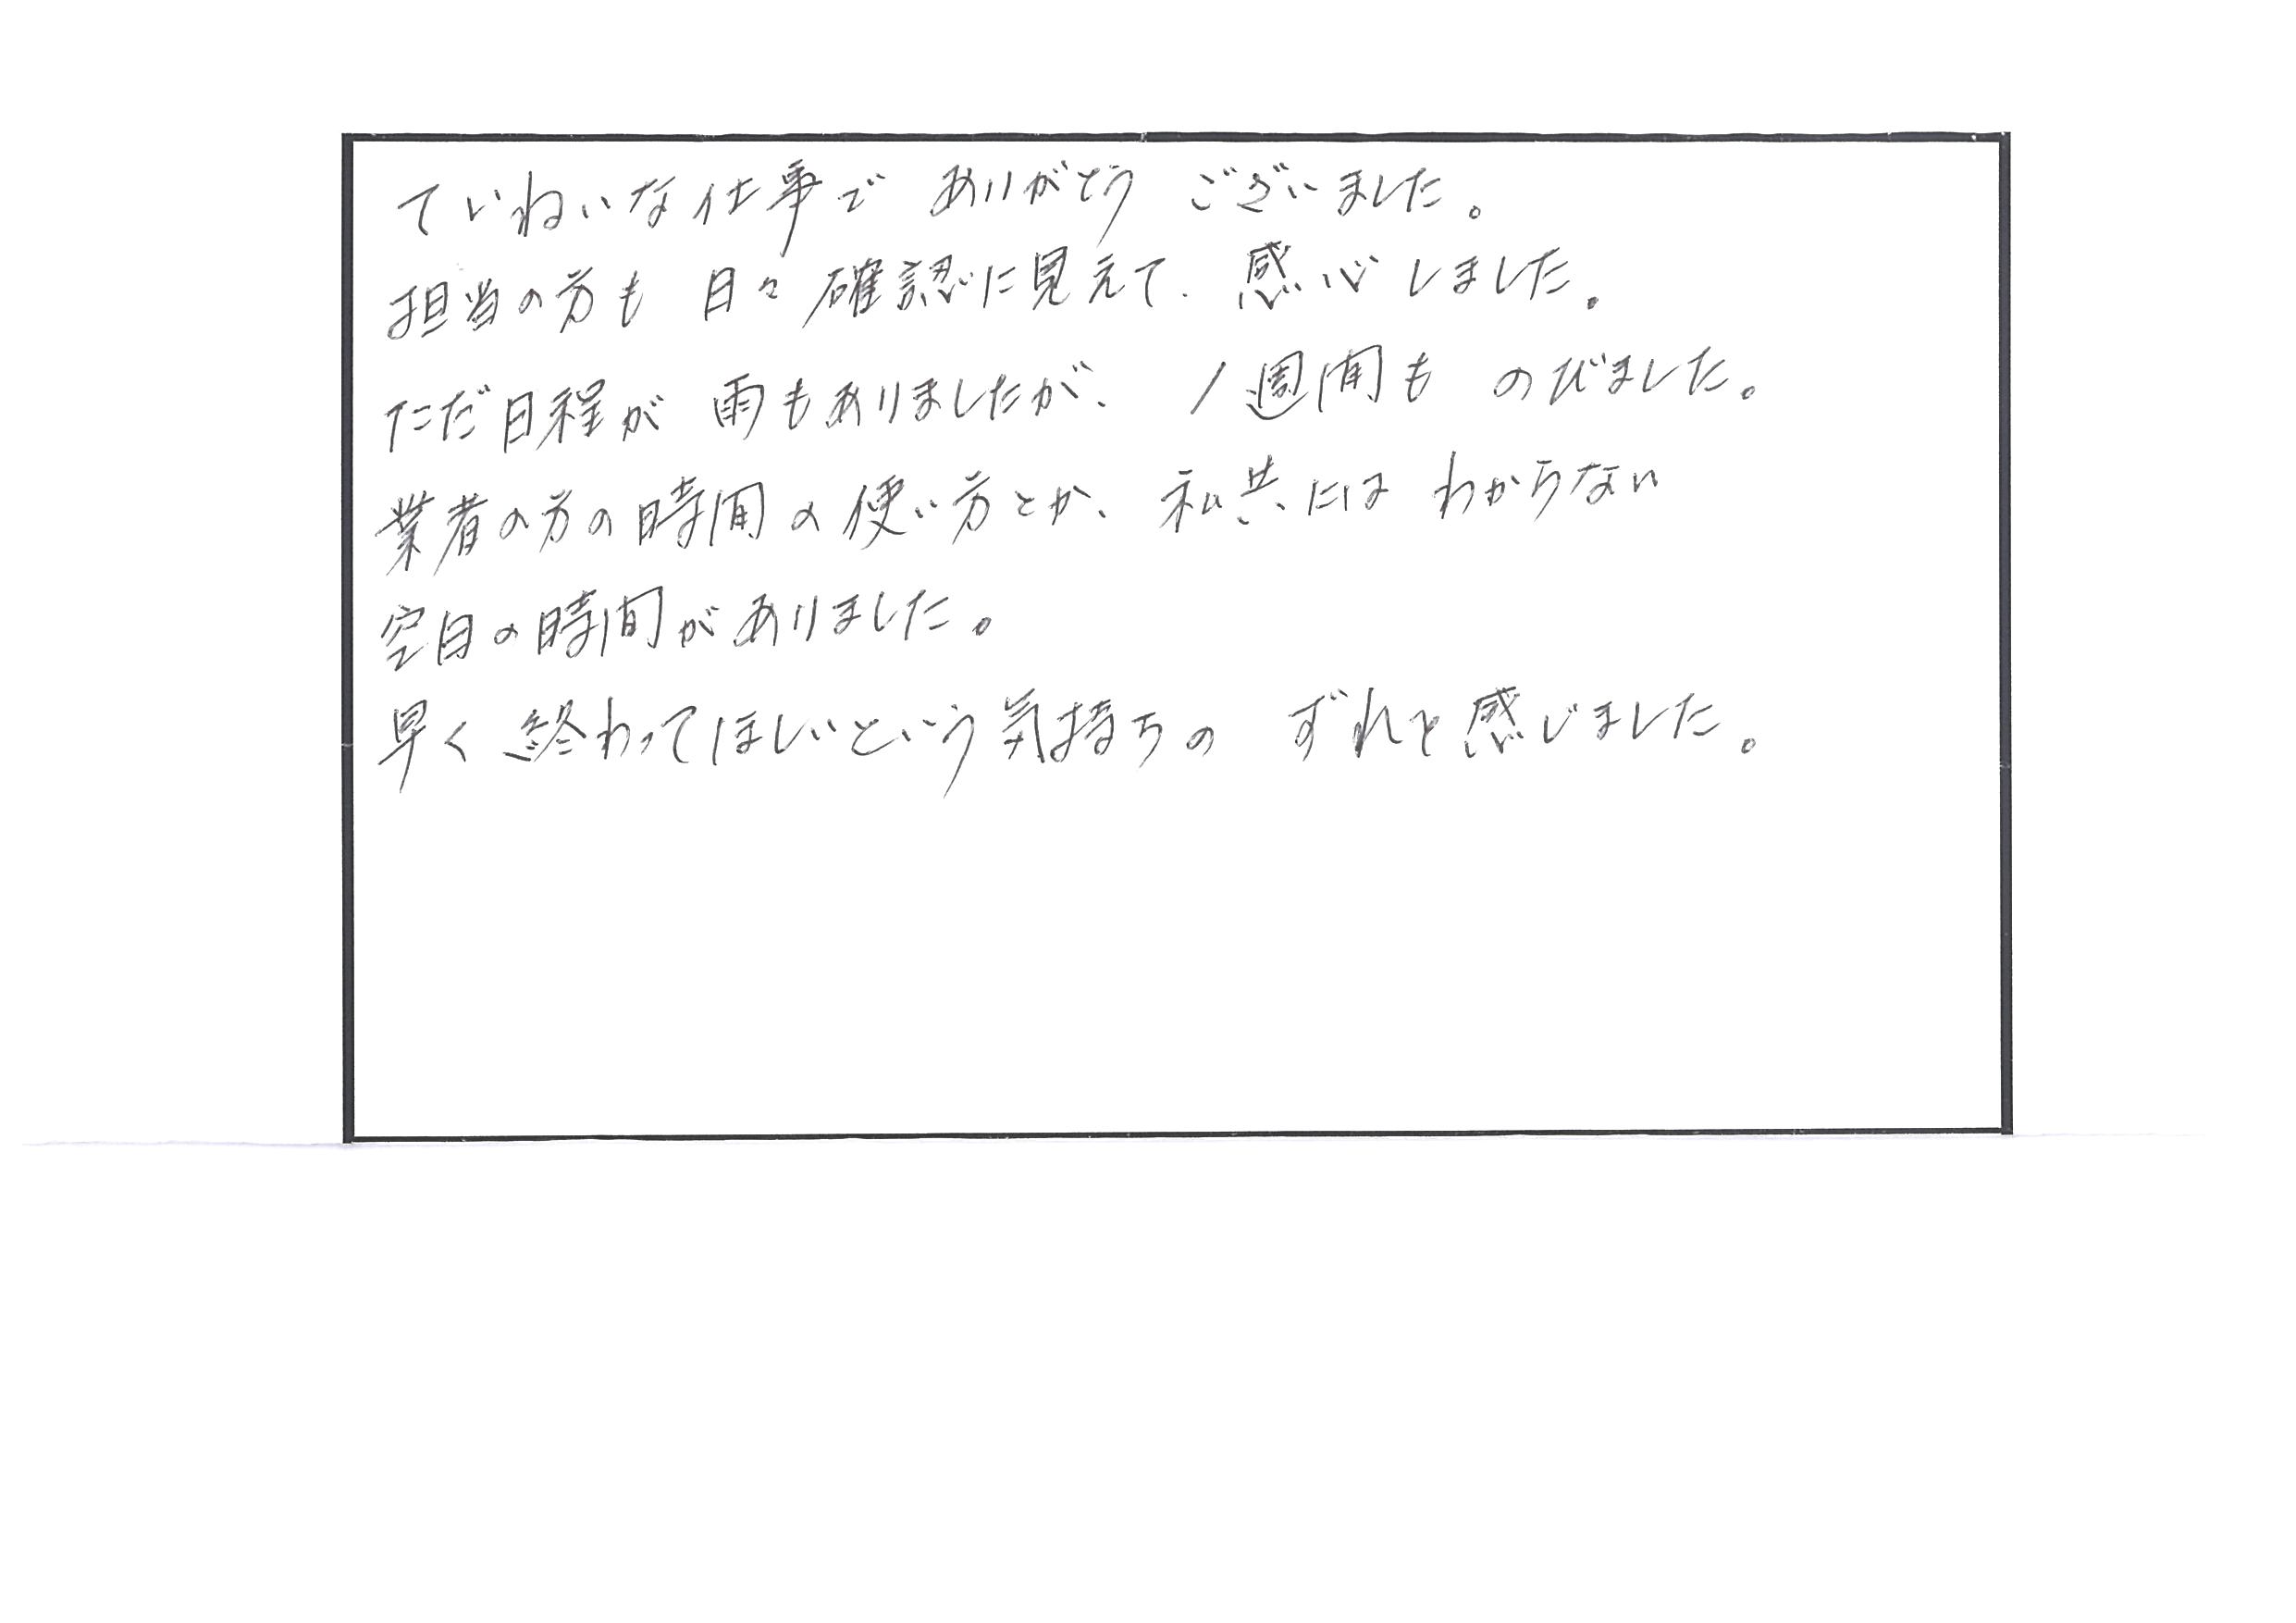 ていねいな仕事で ありがとう ございました。
担当の方も 日々確認に見えて、感心しました。
ただ日程が 雨もありましたが、1週間も のびました。
業者の方の時間の使い方とか、私共には わからない
空白の時間がありました。
早く終わってほしいという気持ちの ずれと感じました。